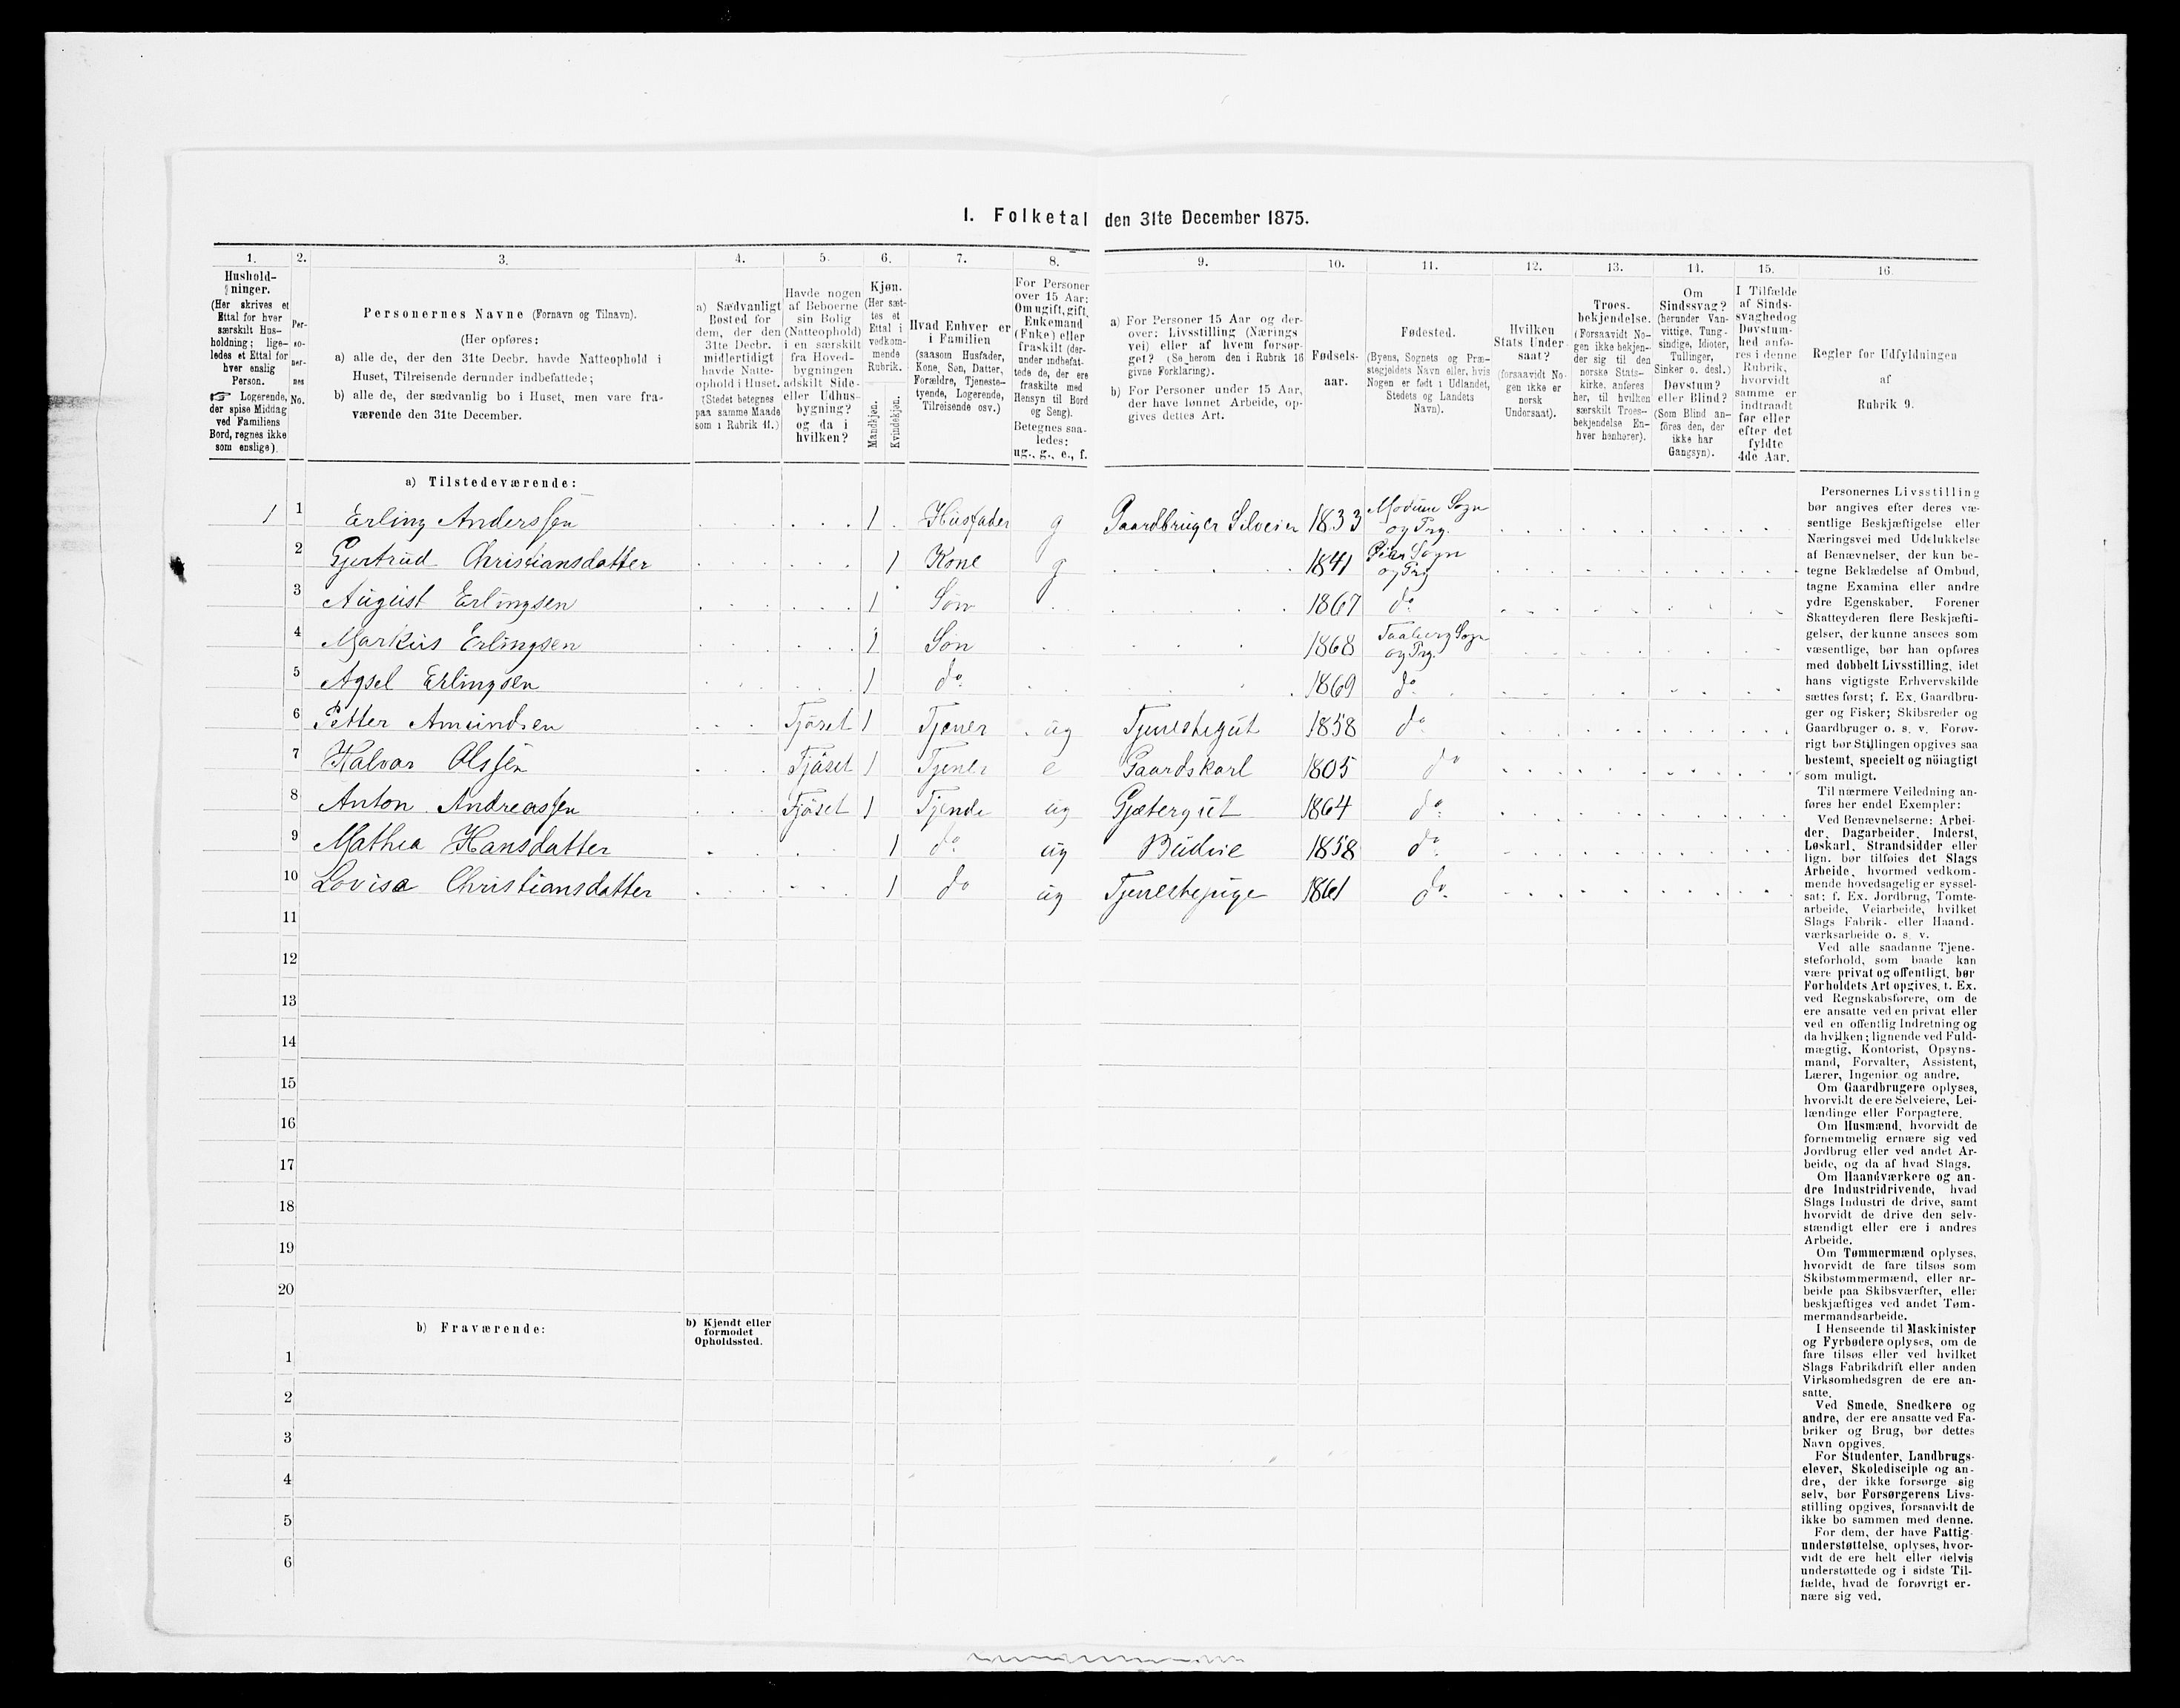 I. Folketal den 31te December 1875.
1.
Hushold-
ninger.
(Her skrives et
Ettal for hver
særskilt Hus-
holdning; lige-
ledes et Ettal for
hver enslig
Person.
☞ Logerende,
der spise Middag
ved Familiens
Bord, regnes ikke
som enslige).
2.
Per-
so-
ner-
nes
No.
3.
Personernes Navne (Fornavn og Tilnavn).
(Her opføres:
a) alle de, der den 31te Decbr. havde Natteophold i
Huset, Tilreisende derunder indbefattede;
b) alle de, der sædvanlig bo i Huset, men vare fra-
værende den 31te December.
4.
a) Sædvanligt
Bosted for
dem, der den
31te Decbr.
midlertidigt
havde Natte-
ophold i Huset.
(Stedet betegnes
paa samme Maade
som i Rubrik 11.)
5.
Havde nogen
af Beboerne
sin Bolig
(Natteophold)
i en særskilt
fra Hoved-
bygningen
adskilt Side-
eller Udhus-
bygning?
og da i
hvilken?
6.
Kjøn.
(Her sæt-
tes et
Ettal i
vedkom-
mende
Rubrik.
Mandkjøn.
Kvindekjøn.
7.
Hvad Enhver er
i Familien
(saasom Husfader,
Kone, Søn, Datter,
Forældre, Tjeneste-
tyende, Logerende,
Tilreisende osv.)
8.
For Personer
over 15 Aar:
Om ugift, gift,
Enkemand
(Enke) eller
fraskilt (der-
under indbefat-
tede de, der ere
fraskilte med
Hensyn til Bord
og Seng).
Betegnes saa-
ledes:
ug., g., e., f.
9.
a) For Personer 15 Aar og der-
over: Livsstilling (Nærings-
vei) eller af hvem forsør-
get? (Se herom den i Rubrik 16
givne Forklaring).
b) For Personer under 15 Aar,
der have lønnet Arbeide, op-
gives dettes Art.
10.
Fødsels-
aar.
11.
Fødested.
(Byens, Sognets og Præ-
stegjeldets Navn eller, hvis
Nogen er født i Udlandet,
Stedets og Landets
Navn).
12.
Hvilken
Stats Under-
saat?
(forsaavidt No-
gen ikke er
norsk
Undersaat).
13.
Troes-
bekjendelse.
(Forsaavidt No-
gen ikke bekjen-
der sig til den
norske Stats-
kirke, anføres
her, til hvilken
særskilt Troes-
bekjendelse En-
hver henhører).
14.
Om
Sindssvag?
(herunder Van-
vittige, Tung-
sindige, Idioter,
Tullinger,
Sinker o. desl.)
Døvstum?
eller Blind?
(Som Blind an-
føres den, der
ikke har
Gangsyn).
15.
I Tilfælde
af Sinds-
svaghed og
Døvstum-
hed anfø-
res i denne
Rubrik,
hvorvidt
samme er
indtraadt
før eller
efter det
fyldte
4de Aar.
16.
Regler for Udfyldningen
af
Rubrik 9.
a) Tilstedeværende:
1 1 Erling Anderssen 1 Husfader g Gaardbruger Selveier 1833 Modum Sogn og Prg.
2 Gjertrud Christiansdatter 1 Kone g 1841 Sogn og Prg
3 August Erlingsen 1 Søn 1867 do
4 Markus Erlingsen 1 Søn 1868 Faaberg Sogn og Prg.
5 Agsel Erlingsen 1 do 1869 do
6 Petter Amundsen Fjøset 1 Tjener ug Tjenestegut 1858 do
7 Halvor Olssen Fjøset 1 Tjener e Gaardskarl 1805 do
8 Anton Andreassen Fjøset 1 Tjende ug Gjætergut 1864 do
9 Mathea Hansdatter 1 do ug Budeie 1858 do
10 Lovise Christiansdatter 1 do ug Tjenestepige 1861 do
11
12
13
14
15
16
17
18
19
20
b) Fraværende:
b) Kjendt eller
formodet
Opholdssted.
1
2
3
4
5
6
Personernes Livsstilling
bør angives efter deres væ-
sentlige Beskjæftigelse eller
Næringsvei med Udelukkelse
af Benævnelser, der kun be-
tegne Beklædelse af Ombud,
tagne Examina eller andre
ydre Egenskaber. Forener
Skatteyderen flere Beskjæfti-
gelser, der kunne ansees som
væsentlige, bør han opføres
med dobbelt Livsstilling, idet
hans vigtigste Erhvervskilde
sættes først; f. Ex. Gaardbru-
ger og Fisker; Skibsreder og
Gaardbruger o. s. v. Forøv-
rigt bør Stillingen opgives saa
bestemt, specielt og nöiagtigt
som muligt.
Til nærmere Veiledning an-
føres her endel Exempler:
Ved Benævnelserne: Arbei-
der, Dagarbeider, Inderst,
Løskarl, Strandsidder eller
lign. bør tilføies det Slags
Arbeide, hvormed vedkom-
mende hovedsagelig er syssel-
sat; f. Ex. Jordbrug, Tømte-
arbeide, Veiarbeide, hvilket
Slags Fabrik- eller Haand-
værksarbeide o. s. v.
Ved alle saadanne Tjene-
steforhold, som baade kan
være privat og offentligt, bør
Forholdets Art opgives, t. Ex.
ved Regnskabsførere, om de
ere ansatte ved en privat eller
ved en offentlig Indretning og
da hvilken; lignende ved Fuld-
mægtig, Kontorist, Opsyns-
mand, Forvalter, Assistent,
Lærer, Ingeniør og andre.
Om Gaardbrugere oplyses,
hvorvidt de ere Selveiere, Lei-
lændinge eller Forpagtere.
Om Husmænd, hvorvidt de
fornemmelig ernære sig ved
Jordbrug eller ved andet Ar-
beide, og da af hvad Slags.
Om Haandværkere og an-
dre Industridrivende, hvad
Slags Industri de drive, samt
hvorvidt de drive den selv-
stændigt eller ere i andres
Arbeide.
Om Tømmermænd oplyses,
hvorvidt de fare tilsøs som
Skibstømmermænd, eller ar-
beide paa Skibsværfter, eller
beskjæftiges ved andet Tøm-
mermandsarbeide.
I Henseende til Maskinister
og Fyrbødere oplyses, om de
fare tilsøs eller ved hvilket
Slags Fabrikdrift eller anden
Virksomhedsgren de ere an-
satte.
Ved Smede, Snedkere og
andre, der ere ansatte ved Fa-
briker og Brug, bør dettes
Navn opgives.
For Studenter, Landbrugs-
elever, Skoledisciple og an-
dre, der ikke forsørge sig
selv, bør Forsørgerens Livs-
stilling opgives, forsaavidt de
ikke bo sammen med denne.
For dem, der have Fattig-
understøttelse, oplyses, hvor-
vidt de ere helt eller delvis
understøttede og i sidste Til-
fælde, hvad de forøvrigt er-
nære sig ved.